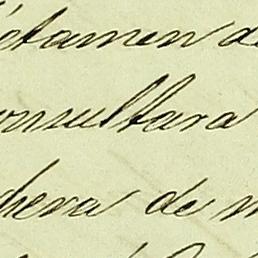 ictamen de
onsultara
hera de m